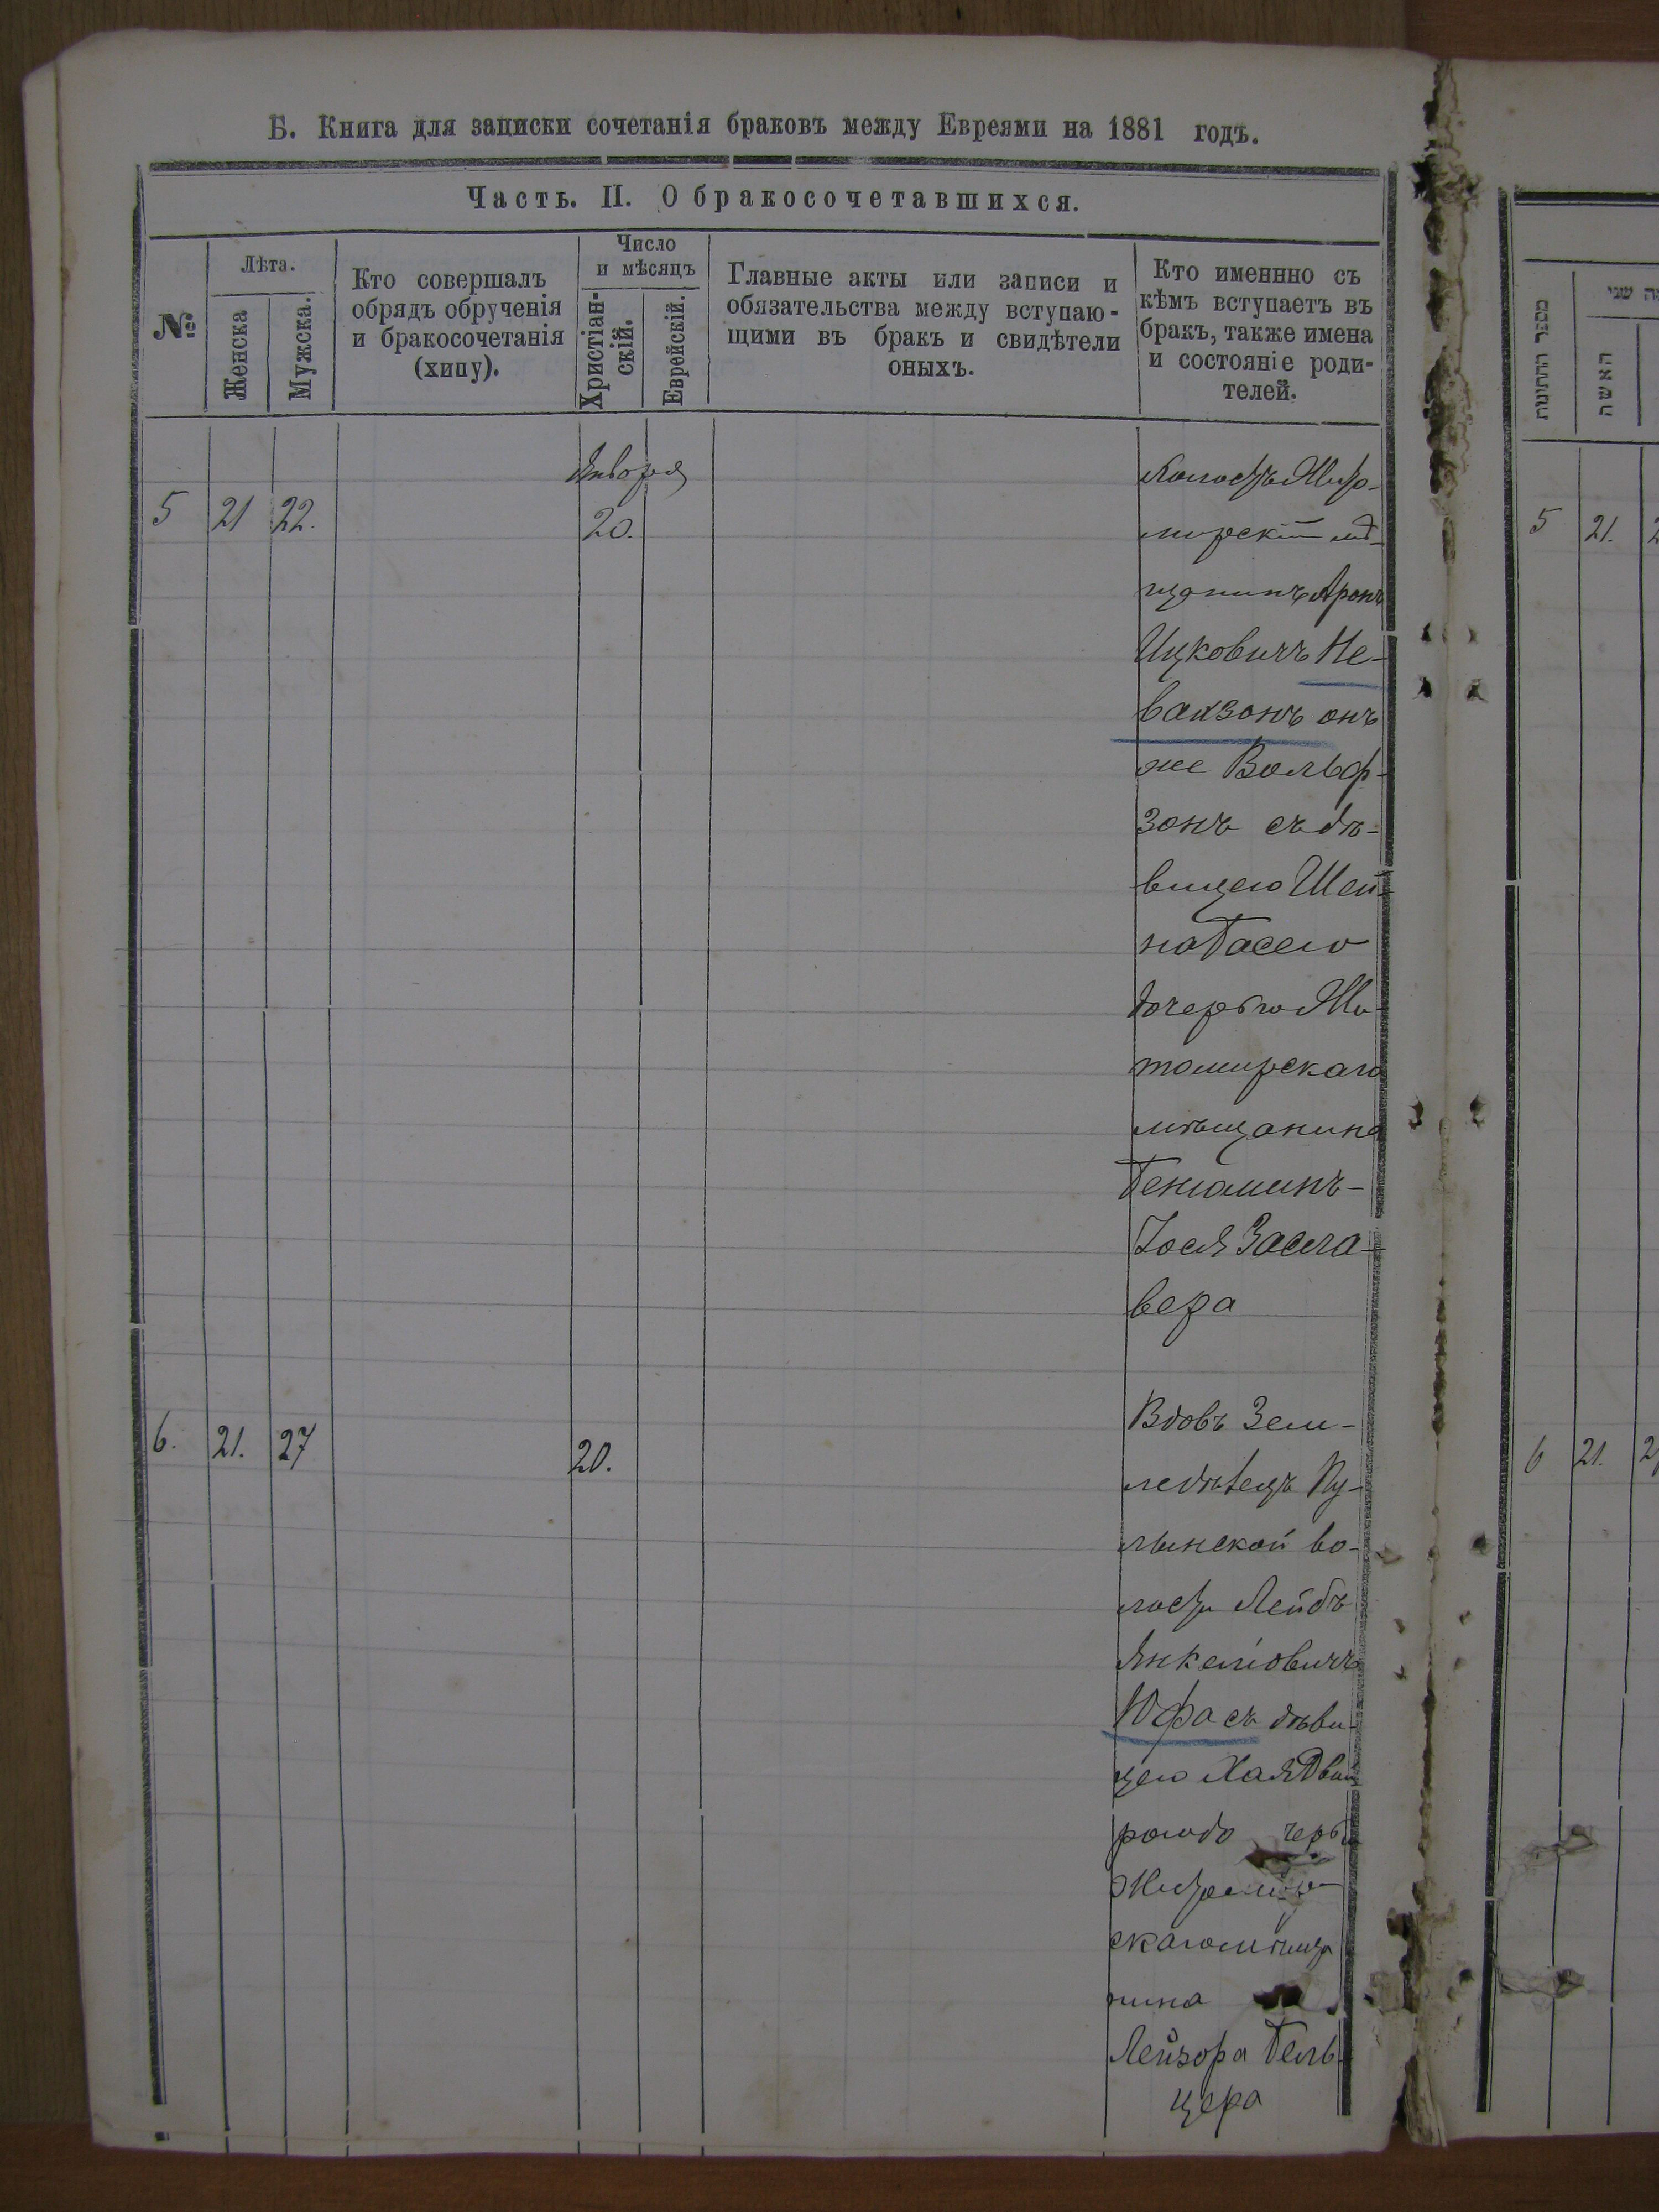 Б. Книга для записки сочетанія браковъ между Евреями на 1881 годъ.
Часть. II. О бракосочетавшихся.
№
Лѣта.
Женска
Мужска.
Кто совершалъ
обрядъ обрученія
и бракосочетанія
(хипу).
Число
и мѣсяцъ
Христіан-
скій.
Еврейскій.
Главные акты или записи и
обязательства между вступаю-
щими въ бракъ и свидѣтели
оныхъ.
Кто именнно съ
кѣмъ вступаетъ въ
бракъ, также имена
и состояніе роди-
телей.
Января
5 21 22. 20.
Холостъ Жито-
мирскій мѣ-
щанинъ Аронъ
Ицковичъ Не-
вакзонъ онъ
же Вольф-
зонъ съ дѣ-
вицею Шей-
на Басею
дочерью Жи-
томирскаго
мѣщанина
Беніаминъ-
Іося Засла-
вера
6. 21. 27 20.
Вдовъ Зем-
ледѣлецъ Пу-
лынской во-
лости Лейбъ
Янкеліовичъ
Юфа съ дѣви-
цею Хая Двой
рою до черью
Житомир-
скаго мѣща
нина
Лейзора Бель-
цера
מספר החתונות
שני
האשה
5 21. 2
6 21. 2